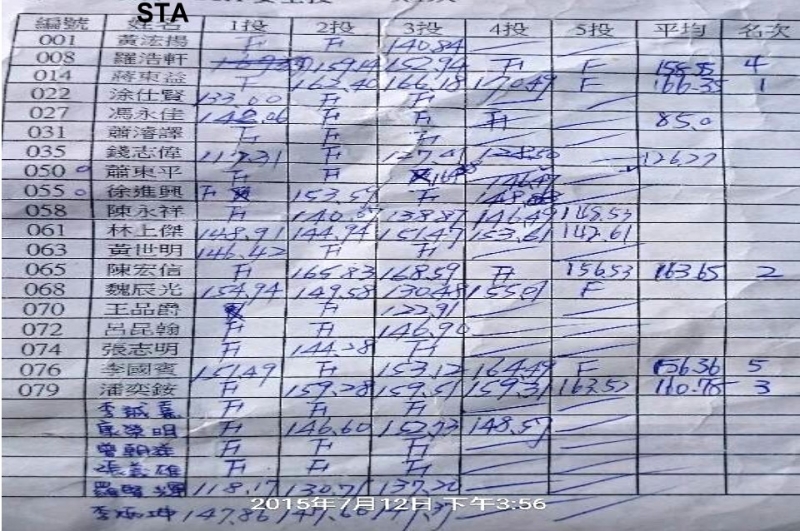 STA
編號 姓名 1投 2投 3投 4投 5投 平均 名次
001 黃浤揚 F F 140.84
008 羅浩軒 159.14 152.94 F F 4
014 蔣東益 F 162.40 166.18 170.49 F 166.35 1
022 涂仕賢 133.00 F F
027 馮永佳 142.06 F F F 85.0
031 蕭濬譯 F F F
035 錢志偉 117.31 F 127.41 128.50 126.27
050 蕭東平 F F
055 徐進興 F 153.59 F
058 陳永祥 F 138.87 146.49 148.53
061 林上傑 148.91 144.94 151.47 153.61 142.61
063 黃世明 146.42 F F
065 陳宏信 F 165.83 168.59 F 156.53 163.65 2
068 魏辰光 154.94 149.58 130.48 155.01 F
070 王品爵 F 122.91
072 呂昆翰 F F 146.90
074 張志明 F 144.28 F
076 李國賓 151.49 F 153.12 164.49 F 156.36 5
079 潘奕銨 F 159.28 159.51 159.31 162.52 160.75 3
F F F
明 F 146.60 152.73 148.57
F F F
張 雄 F F F
羅 輝 118.17 130.71 137.20
2015年7月12日 下午3:56
李 坤 147.86